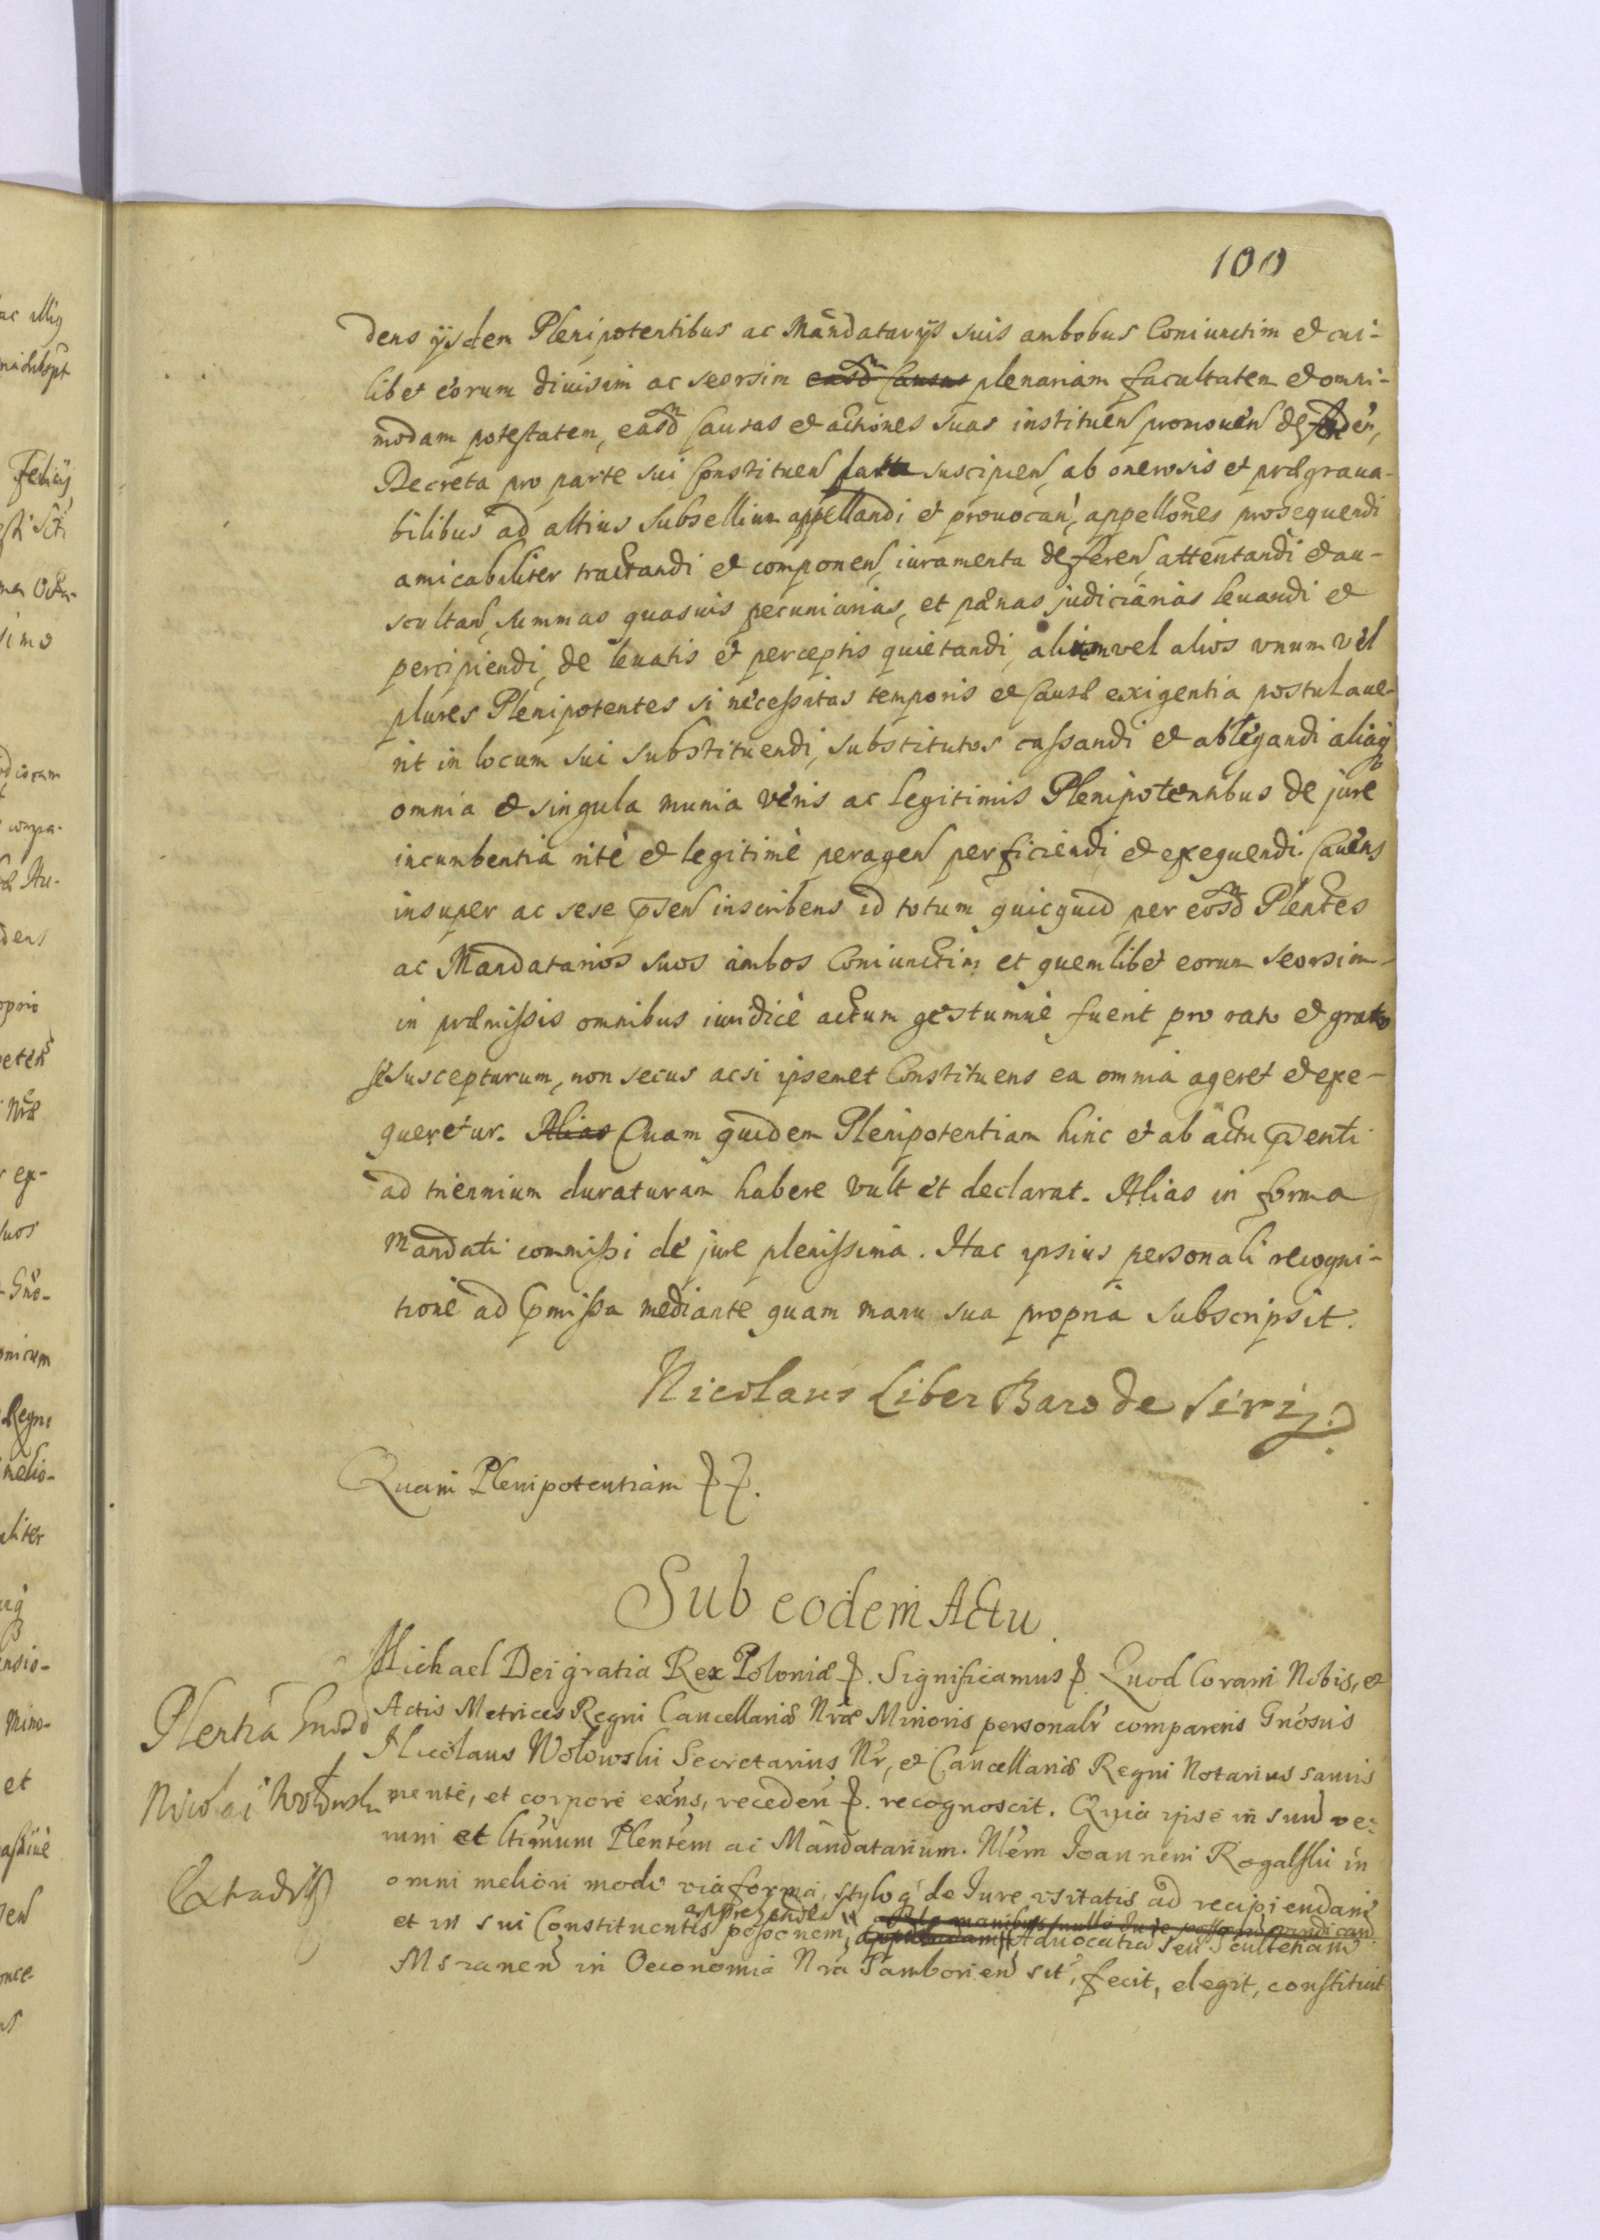 100
dens ijsdem Plenipotentibus ac Mandatarijs suis ambobus Coniunctim et cui-
libet eorum diuisim ac seorsim easd Causas plenariam facultatem et omni-
modam potestatem, easd Causas et actiones suas instituen promouen defenden,
Decreta pro parte sui Constituen suscipien ab onerosis et prægraua-
bilibus ad altius Subsellium appellandi et prouocan, appellones prosequendi
amicabiliter tractandi et componen, iuramenta deferen attentandi et au-
scultan, summas quasuis pecuniarias, et pænas judiciarias leuandi et
percipiendi, de leuatis et perceptis quietandi, alium vel alios vnum vel
plures Plenipotentes si necessitas temporis et Causæ exigentia postulaue-
rit in locum sui substituendi, substitutos cassandi et ablegandi aliaq
omnia et singula munia veris ac legitimis Plenipotentibus de jure
incumbentia rite et legitimè peragen perficiendi et exequendi. Cauens
insuper ac sese inscribens id totum quicquid per eosd Plentes
ac Mandatarios suos ambos Coniunctim et quemlibet eorum seorsim
in præmissis omnibus iuridicè actum gestumue fuerit pro rato et grato
se suscepturum, non secus acsi ipsemet Constituens ea omnia ageret et exe-
queretur. Alias Quam quidem Plenipotentiam hinc et ab actu pnti
ad triennium duraturam habere vult et declarat. Alias in forma
Mandati commissi de jure plenissima. Hac ipsius personali recogni-
tione ad pmissa mediante quam manu sua propria subscripsit.
Nicolaus Liber Baro de
Quam Plenipotentiam
Sub eodem Actu
Michael Dei gratia Rex Poloniæ. Significamus Quod Coram Nobis, et
Actis Metrices Regni Cancellariæ Nræ Minoris personalr comparens Gnosus
Nicolaus Wołowski Secretarius Nr, et Cancellariæ Regni Notarius sanus
mente, et corpore exns, receden recognoscit. Quia ipse in suu ve:
rum et ltimum Plentem ac Mandatarium. Nlem Joannem Rogalski in
omni meliori modo via forma, styloq de Jure vsitatis ad recipiendam
apprehenden
et in sui Constituentis possonem, Aduocatia seu Scultetiam
in Oeconomia Nra Samborien sit, fecit, elegit, constituit
Plentia Gnosi
Nicolai Wołowski